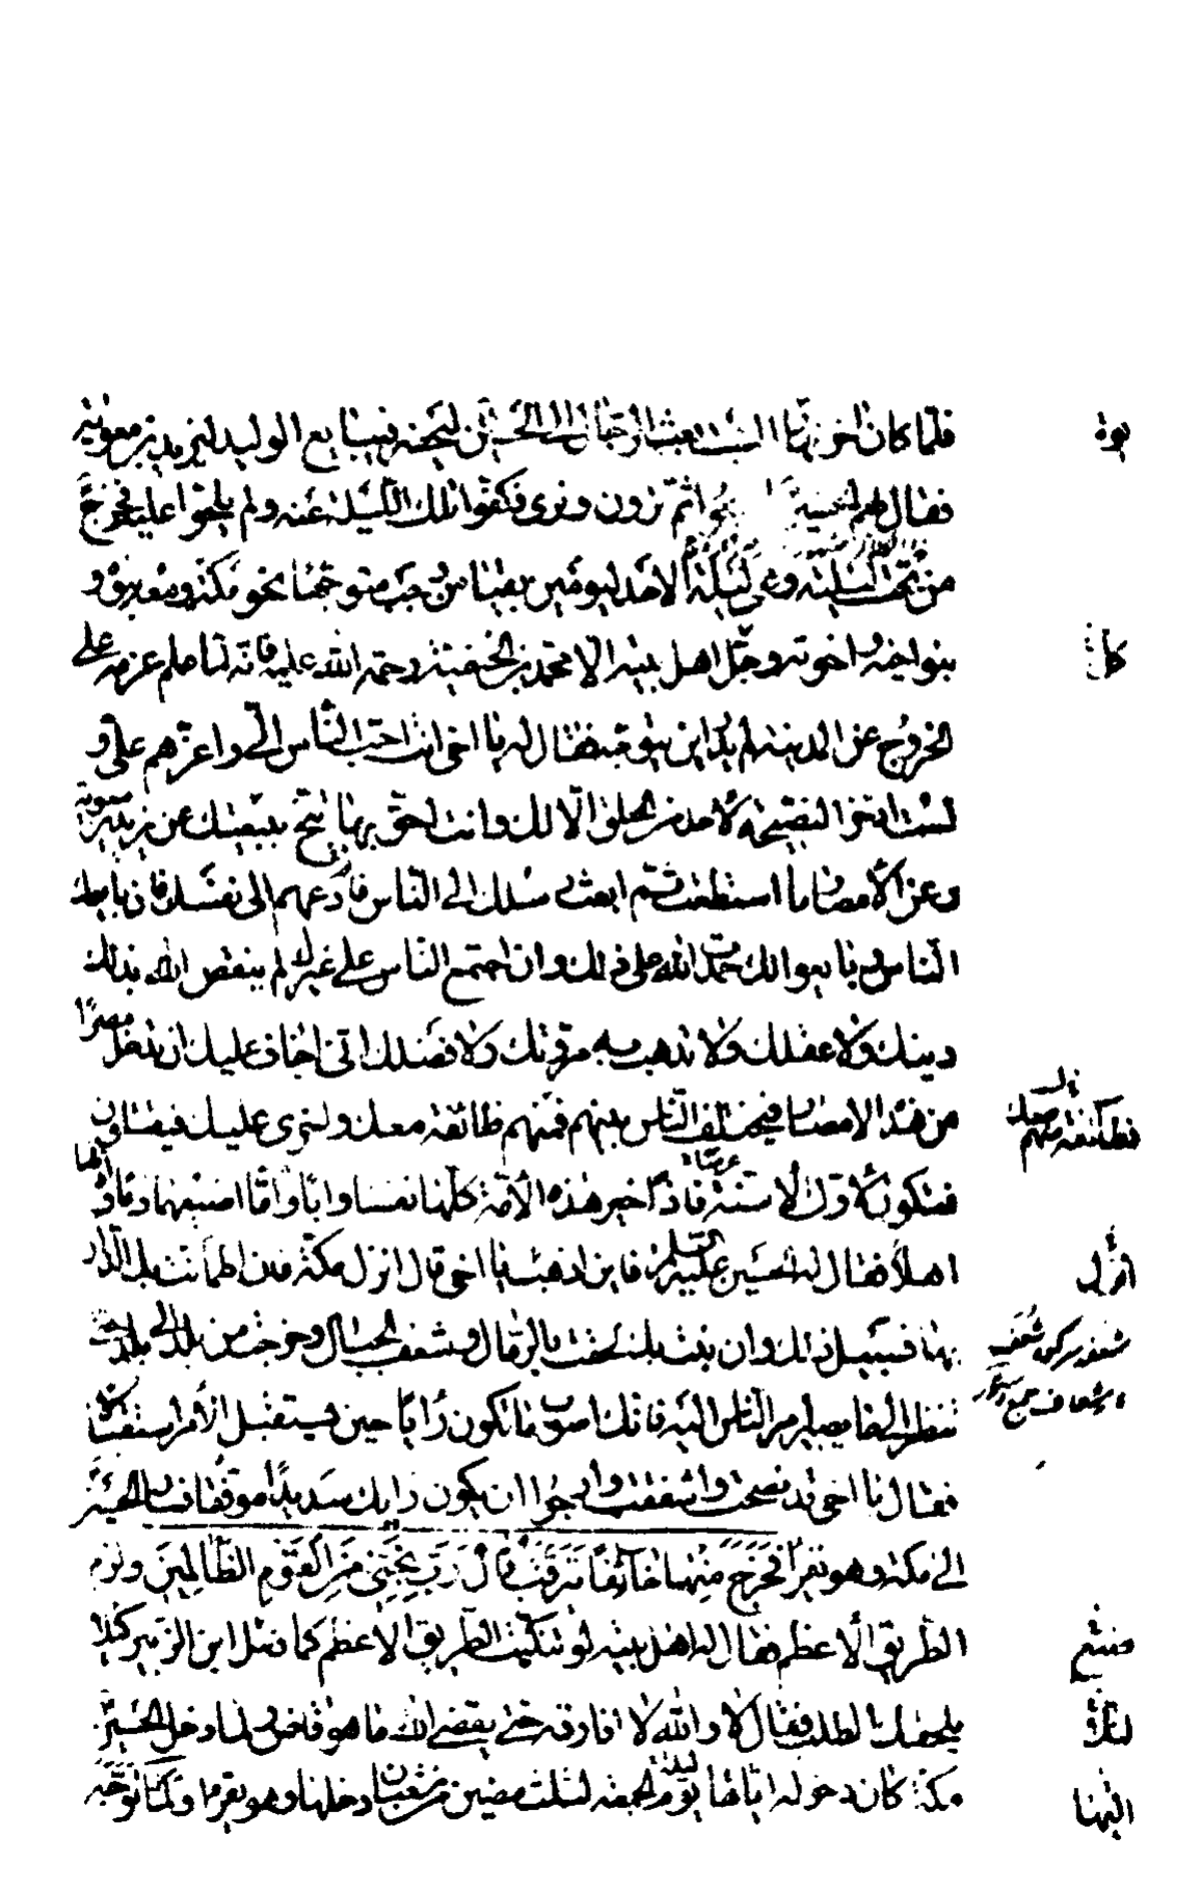 فلما كان اخر نهار السبت بعث الرجال الى الحسين ليحضر فيبايع الوليد ليزيد بن معوية
فقال لهم الحسين اصبحوا ثم ترون ونرى فكفوا تلك الليلة عنه ولم يلحوا عليه فخرج
من تحت ليلته وهي ليلة الاحد ليومين بقيا من رجب متوجها نحو مكة ومعه بنوه و
بنوا اخيه واخوته وجل اهل بيته الا محمد بن الحنفية رحمة الله عليه فانه لما علم عزمه على
الخروج عن المدينة لم يدر اين يتوجه فقال له يا اخى انت احب الناس الى واعزهم على و
لست ادخر النصيحة لاحد من الخلق الا لك وانت احق بها تنح ببيعتك عن يزيد بن معوية
وعن الأمصار ما استطعت ثم ابعث رسلك الى الناس فادعهم الى نفسك فان بايعك
الناس وبايعوا لك حمدت الله على ذلك وان اجتمع الناس على غيرك لم ينقص الله بذلك
دينك ولا عقلك ولا تذهب به مروتك ولا فضلك انى اخاف عليك ان تدخل مصرا
من هذه الامصار فيختلف الناس بينهم فمنهم طائفة معك واخرى عليك فيقتتلون
فتكون لأول الأسنة غرضا فاذا خير هذه الأمة كلها نفسا وابا واما اضيعها دما واذلها
اهلا فقال له الحسين عليه السلم فاين اذهب يا اخى قال انزل مكة فان اطمأنت بك الدار
بها فسبيل ذلك وان نبت بك لحقت بالرمال وشعف الجبال وخرجت من بلد الى بلد حتى
تنظر الى ما يصير امر الناس اليه فانك اصوب ما تكون رايا حين تستقبل الأمر استقبالا
فقال يا اخى قد نصحت واشفقت وارجوا ان يكون رايك سديدا موفقا فسار الحسين
الى مكة وهو يقرأ فخرج منها خائفا يترقب قال رب نجني من القوم الظالمين ولزم
الطريق الأعظم فقال له اهل بيته لو تنكبت الطريق الاعظم كما فعل ابن الزبير كيلا
يلحقك الطلب فقال لا والله لا افارقه حتى يقضى الله ما هو قاض ولما دخل الحسين
مكة كان دخوله اياها يوم ليلة الجمعة لثلث مضين من شعبان دخلها وهو يقرء ولما توجه
بنوه
كان
فطائفة منهم
انزل
شعفه شعف
شعاف
فتنح
لنازلة
اليها